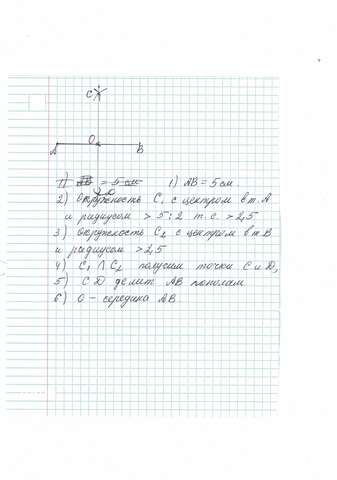 C
O
A B
1) AB = 5 см 1) AB = 5 см
D
2) Окружность C₁ с центром в т. A
и радиусом > 5 : 2 т.е. > 2,5
3) Окружность C₂ с центром в т. B
и радиусом > 2,5
4) C₁ ∩ C₂ получим точки C и D,
5) CD делит AB пополам
6) O – середина AB